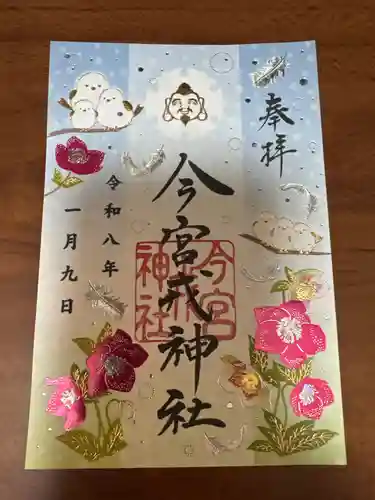 奉拝
今宮戎神社
今宮
神社
令和八年
一月九日